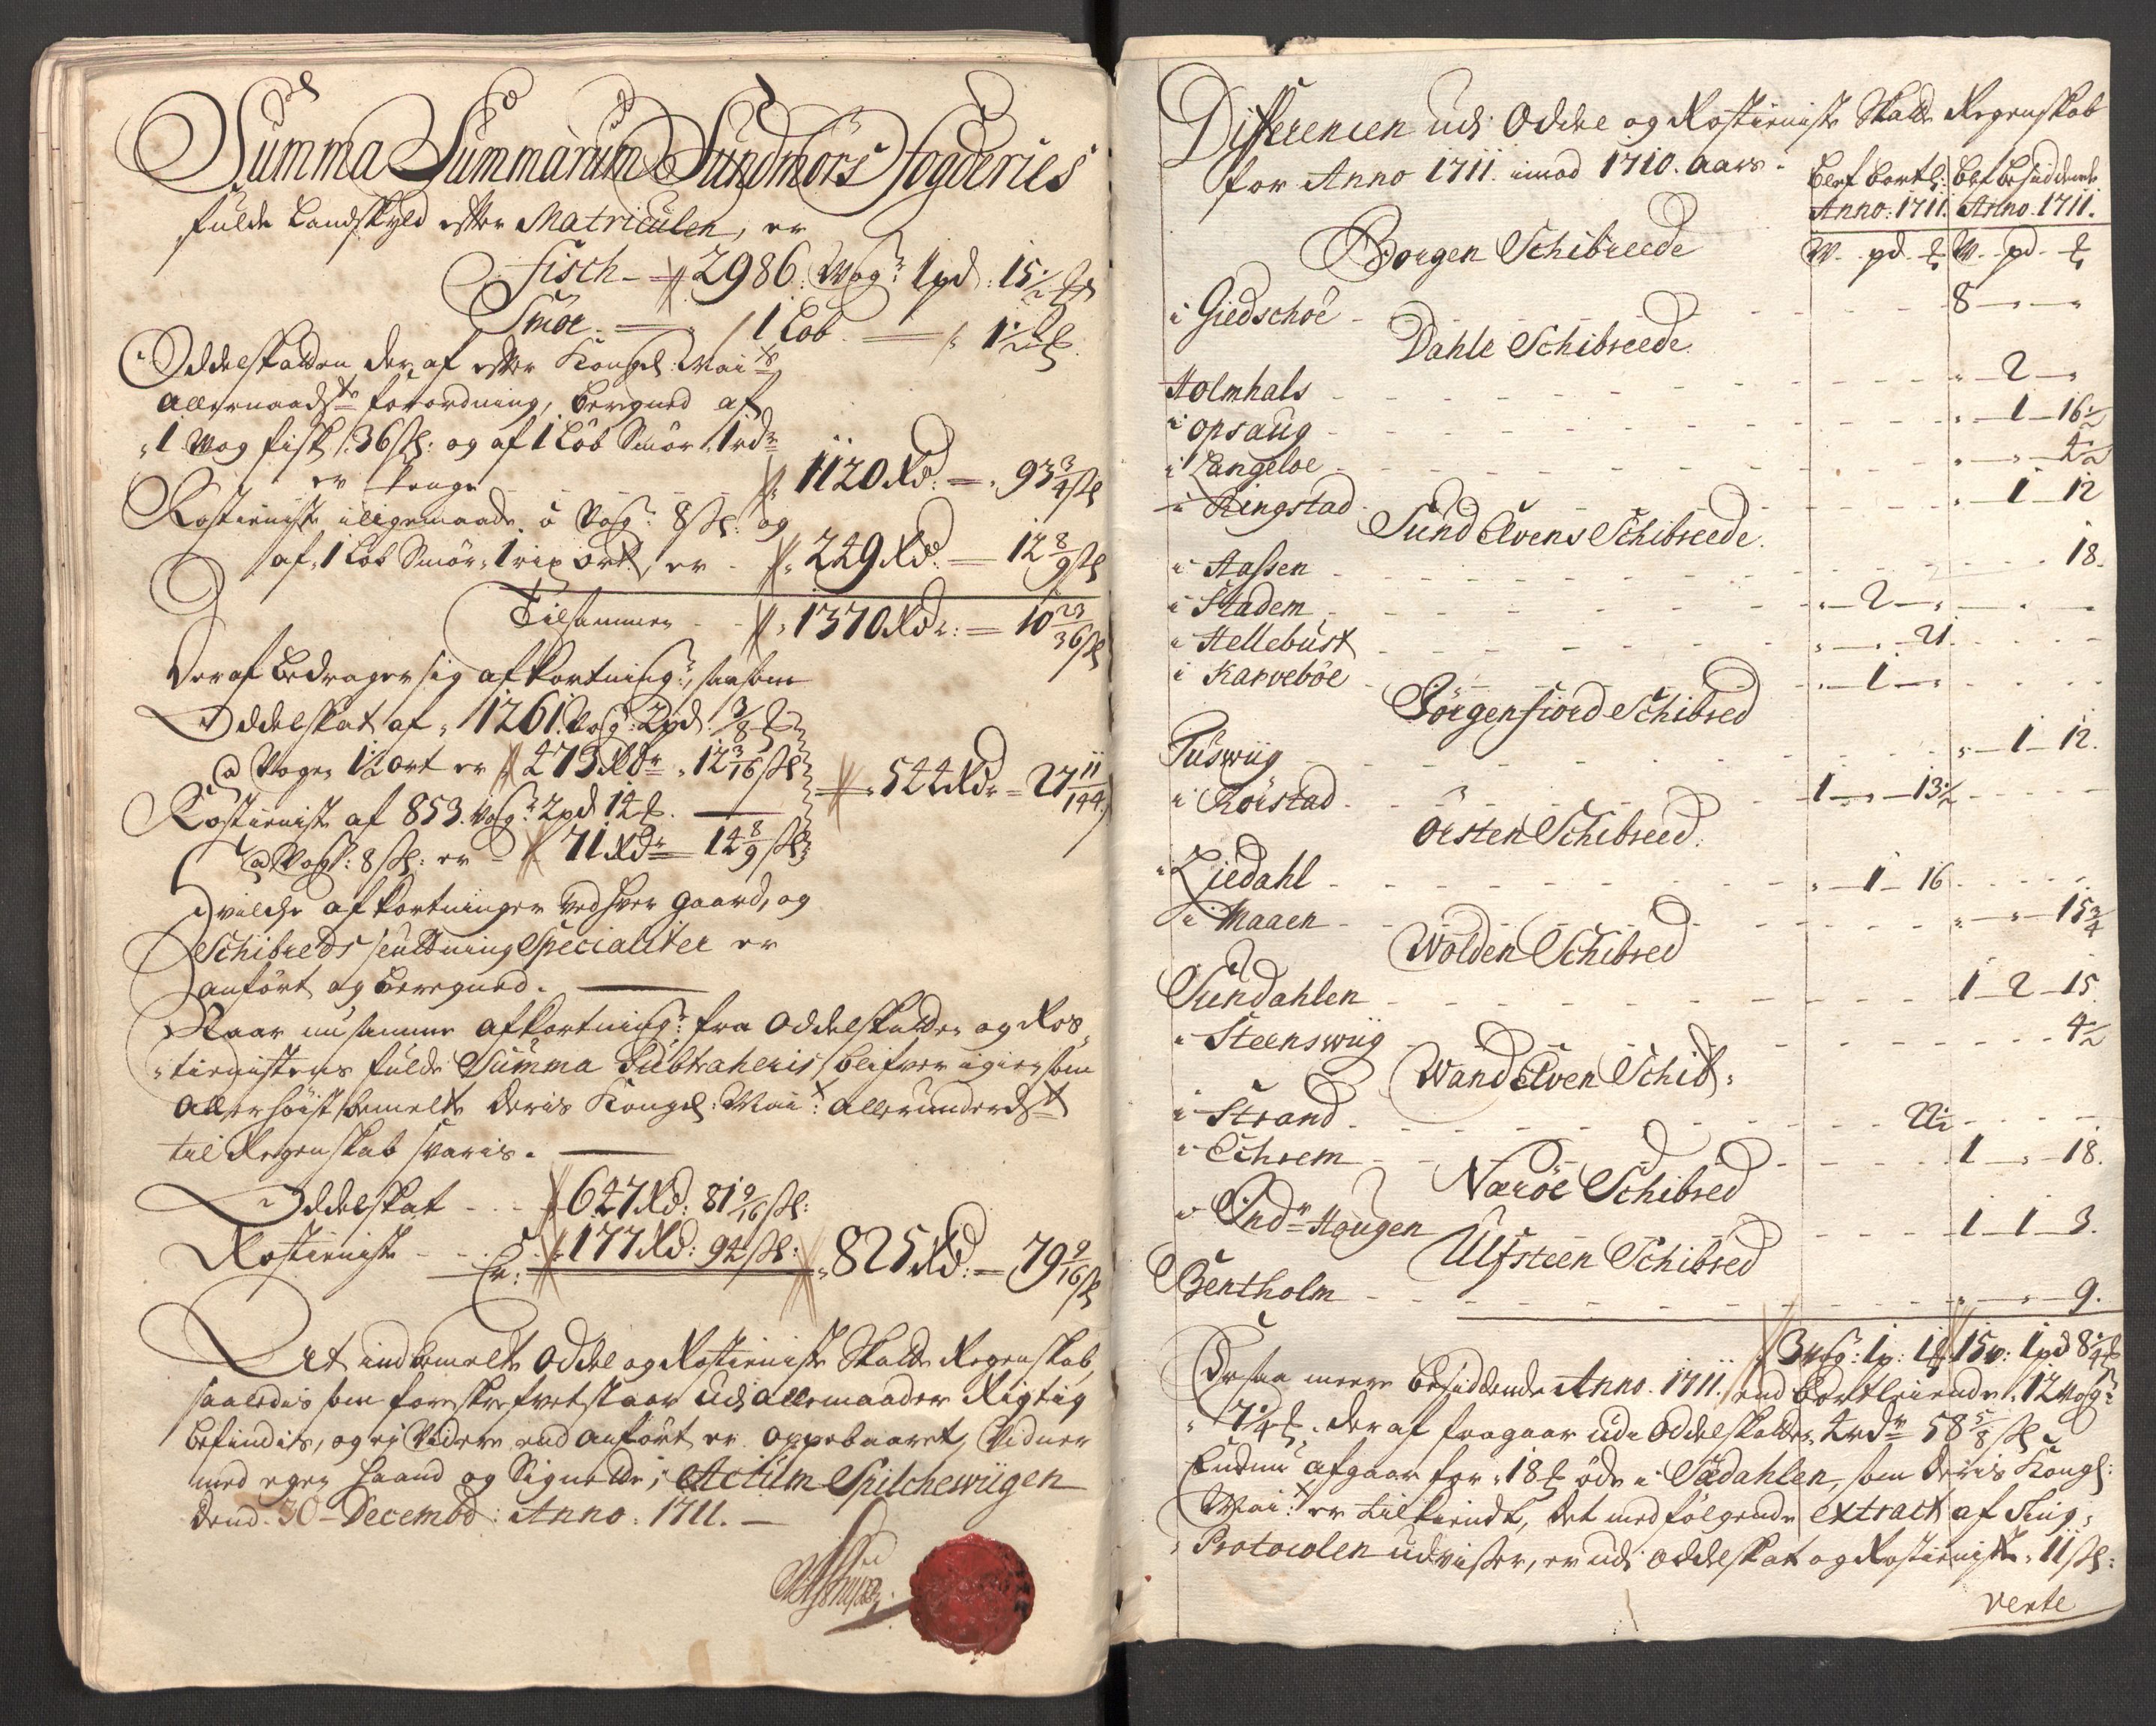 Summa Summarum Sundmörs fogderies
fulde Landskyld efter Matriculen, er
fisch - 2986 Wog: 1 pd: 15 1/2 ℔
Smör - 1 Løb - 1 1/2 ℔
Oddelskatten der af efter Kongel: Mai:ts
allernaadste forordning, beregned af
1 Wog fisk 36 sk: og af 1 Løb Smör 1 rdr
er penge - 1120 Rd: - 93 3/4 sk
Rostieniste iligemaade à Vog: 8 sk: og
af 1 Løb Smör 1 rix ort, er - 249 Rd: - 12 8/9 sk
Tilsammen - 1370 Rdr: - 10 23/36 sk
Deraf bedrager sig afkortning:, saasom
Oddelskat af 1261 Vog: 2 pd 3/8 ℔
à Vogen 1 1/2 ort er 473 Rdr 12 3/16 sk - 544 Rdr - 27 11/144
Rostieniste af 853 Vog: 2 pd 12 ℔
à Vog: 8 sk: er 71 Rdr 14 8/9 sk
Hvilche afkortninger ved hver gaard, og
Schibreds slutning Specialiter er
anført og beregned.
Naar nu samme afkortning: fra Oddelskatten og Ros-
tienistens fulde Summa Subtraheris, blifver igien som
allerhöist bemelte deris Kongel: Mai:t allerunderdst
til Regenskab svaris.
Oddelskat - 647 Rd: 81 9/16 sk:
Rostieniste - Er: 177 Rd: 94 sk: 825 Rd: - 79 9/16 sk
At indbemelte Oddel og Rostieniste Skatte Regenskab,
saaledis som foreskrefvet staar udi allemaader Rigtig
befindis, og ej Videre end anfört er oppebaaret, Vidner
med egen haand og Signette; Actum Spilchewiigen
dend 30 Decembd: Anno 1711.
Differencen udi Oddel og Rostieniste Skatte Regenskab
for Anno 1711 imod 1710 aars.
Anno: 1711. Anno 1711.
W. pd. ℔ W. pd. ℔
Borgen Schibreede
i Giedschöe - 8
Dahle Schibreede
Holmhals - 2
i opsaug - 1 - 16 1/2
i Langeloe - 4 1/2
i Ringstad - 1 12
Sund Elvens Schibreede
i Aassen - 18.
i Stadem - 2
i Hellebust - 21
i Karveböe - 1
Jörgenfiord Schibred
Tuswiig - 1 - 12.
i Rörstad - 1 - 13 1/2
Örsten Schibreed
Liedahl - 1 - 16
i Maaen - 15 3/4
Wolden Schibred
Sundahlen - 1 - 2 - 15
i Steenswiig - 4 1/2
Wand Elven Schib:
i Strand - 22 1/2
i Echrem - 1 - 18.
Naröe Schibred
i Indr Haugen - 1 1 3.
Ulfsteen Schibred
Bentholm - 9.
3 Vog: 1 p: 1 ℔ 15 w: 1 pd 8 1/4 ℔
Er saa meere besiddende Anno 1711. end bortleiende 12 Vog:
7 1/4 ℔, deraf fragaar udi Oddelskatten 4 rdr 58 5/8 sk
Endnu afgaar for 18 ℔ øde i Sædahlen, som deris Kongl:
Mai:t er tilkiendt, det medfölgende extract af ting-
Protocolen udviser, er udi oddelskat og Rostieniste 11 sk:
verte